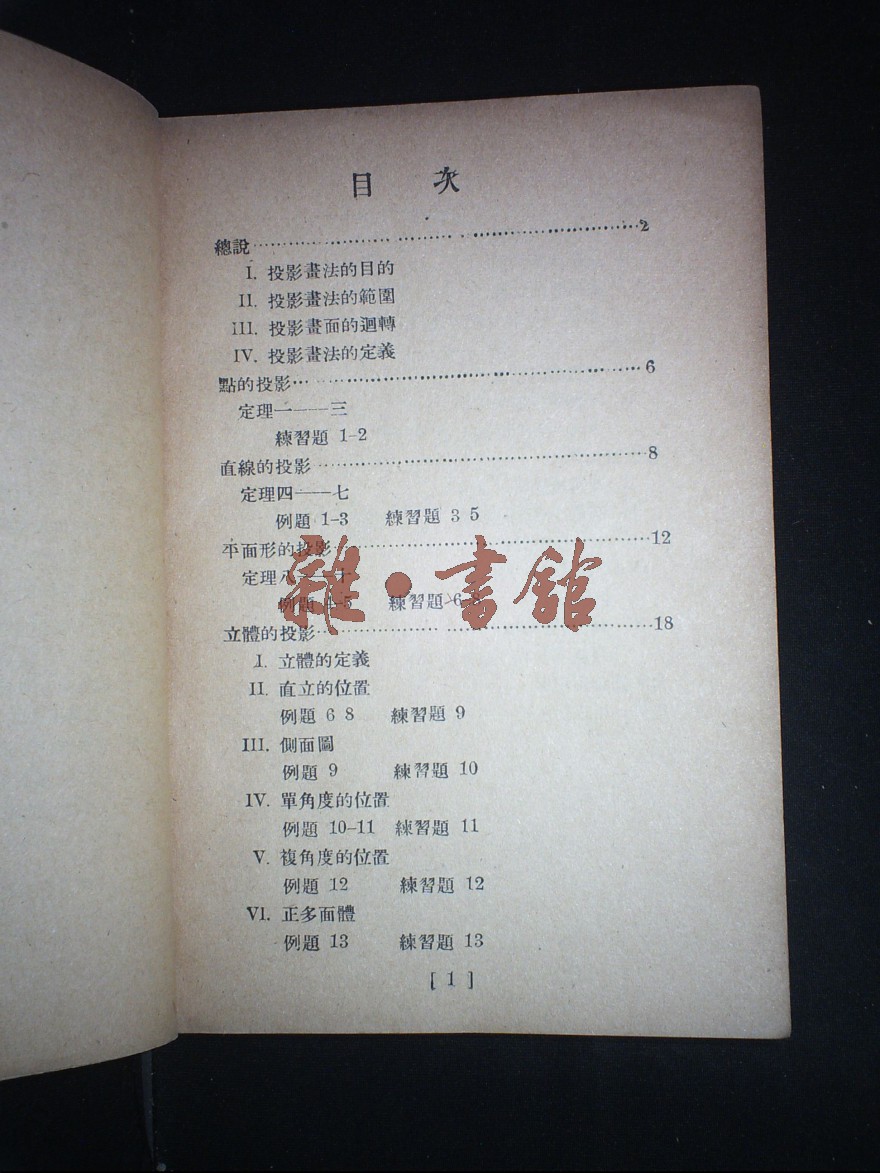 目 次
總說……………………………………2
I. 投影畫法的目的
II. 投影畫法的範圍
III. 投影畫面的迴轉
IV. 投影畫法的定義
點的投影……………………………………6
定理一——三
練習題 1-2
直線的投影……………………………………8
定理四——七
例題 1-3 練習題 3 5
平面形的投影……………………………………12
定理八——十
例題 4-5 練習題 6-8
雜·書館
立體的投影……………………………………18
I. 立體的定義
II. 直立的位置
例題 6 8 練習題 9
III. 側面圖
例題 9 練習題 10
IV. 單角度的位置
例題 10-11 練習題 11
V. 複角度的位置
例題 12 練習題 12
VI. 正多面體
例題 13 練習題 13
[ 1 ]